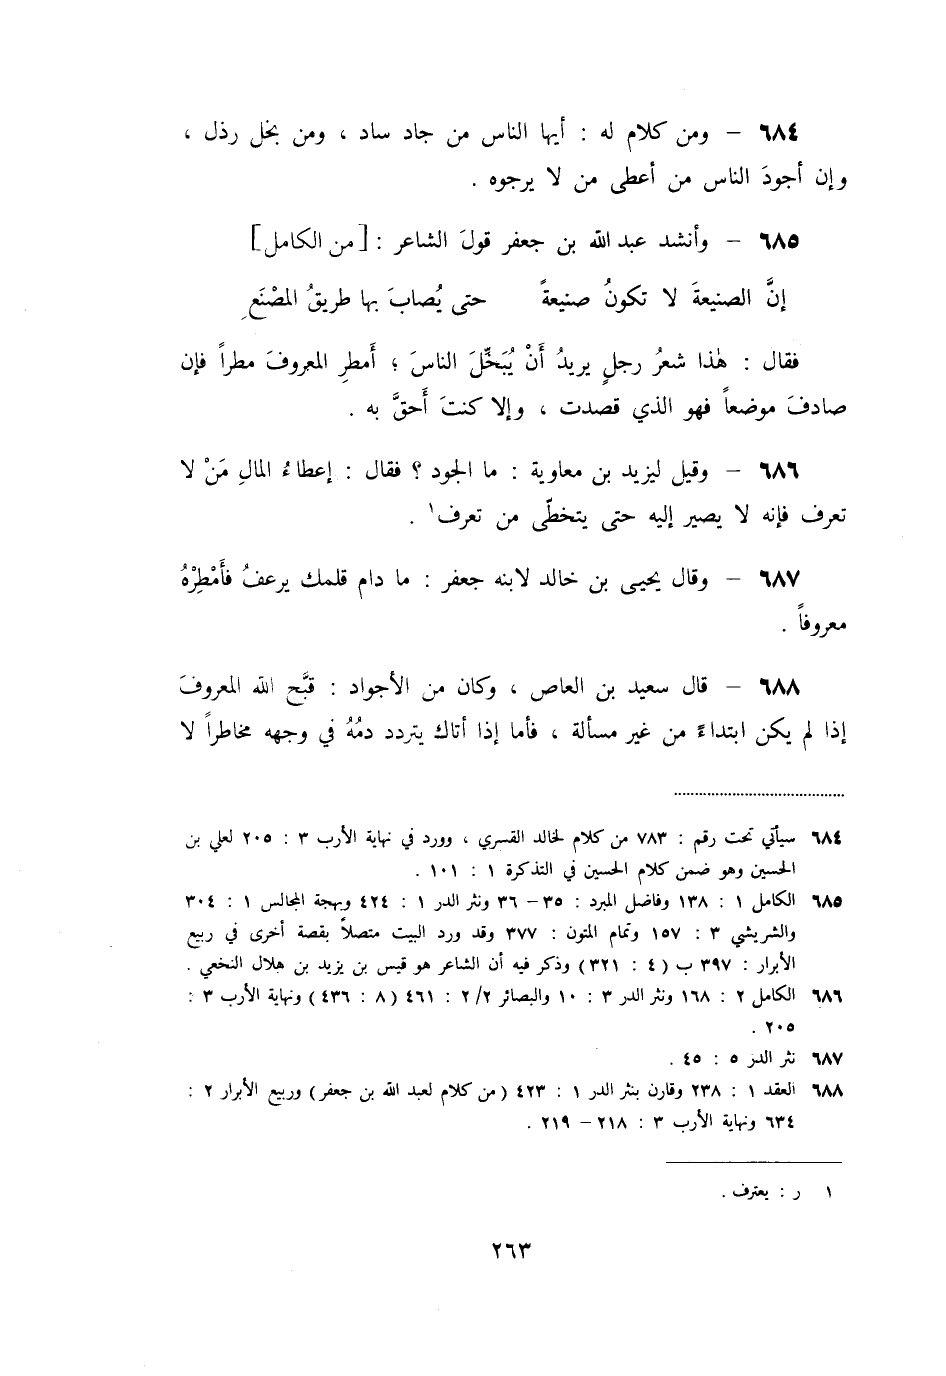 ٦٨٤ – ومن كلام له : أيها الناس من جاد ساد ، ومن بخل رذل ،
وإن أجودَ الناس من أعطى من لا يرجوه .
٦٨٥ – وأنشد عبد الله بن جعفر قولَ الشاعر : [من الكامل]
إنَّ الصنيعةَ لا تكونُ صنيعةً حتى يُصابَ بها طريقُ المصْنَعِ
فقال : هٰذا شعرُ رجلٍ يريدُ أَنْ يُبَخِّلَ الناسَ ؛ أَمطرِ المعروفَ مطراً فإن
صادفَ موضعاً فهو الذي قصدت ، وإلا كنتَ أَحقَّ به .
٦٨٦ – وقيل ليزيد بن معاوية : ما الجود ؟ فقال : إعطاءُ المالِ مَنْ لا
تعرف فإنه لا يصير إليه حتى يتخطّى من تعرف١ .
٦٨٧ – وقال يحيى بن خالد لابنه جعفر : ما دام قلمك يرعفُ فأَمْطِرْهُ
معروفاً .
٦٨٨ – قال سعيد بن العاص ، وكان من الأجواد : قبَّح الله المعروفَ
إذا لم يكن ابتداءً من غير مسألة ، فأما إذا أتاك يتردد دمُهُ في وجهه مخاطراً لا
٦٨٤ سيأتي تحت رقم : ٧٨٣ من كلام لخالد القسري ، وورد في نهاية الأرب ٣ : ٢٠٥ لعلي بن
الحسين وهو ضمن كلام الحسين في التذكرة ١ : ١٠١ .
٦٨٥ الكامل ١ : ١٣٨ وفاضل المبرد : ٣٥ – ٣٦ ونثر الدر ١ : ٤٢٤ وبهجة المجالس ١ : ٣٠٤
والشريشي ٣ : ١٥٧ وتمام المتون : ٣٧٧ وقد ورد البيت متصلاً بقصة أخرى في ربيع
الأبرار : ٣٩٧ ب (٤ : ٣٢١) وذكر فيه أن الشاعر هو قيس بن يزيد بن هلال النخعي .
٦٨٦ الكامل ٢ : ١٦٨ ونثر الدر ٣ : ١٠ والبصائر ٢/٢ : ٤٦١ (٨ : ٤٣٦) ونهاية الأرب ٣ :
٢٠٥ .
٦٨٧ نثر الدر ٥ : ٤٥ .
٦٨٨ العقد ١ : ٢٣٨ وقارن بنثر الدر ١ : ٤٢٣ (من كلام لعبد الله بن جعفر) وربيع الأبرار ٢ :
٦٣٤ ونهاية الأرب ٣ : ٢١٨ – ٢١٩ .
١ ر : يعترف .
٢٦٣